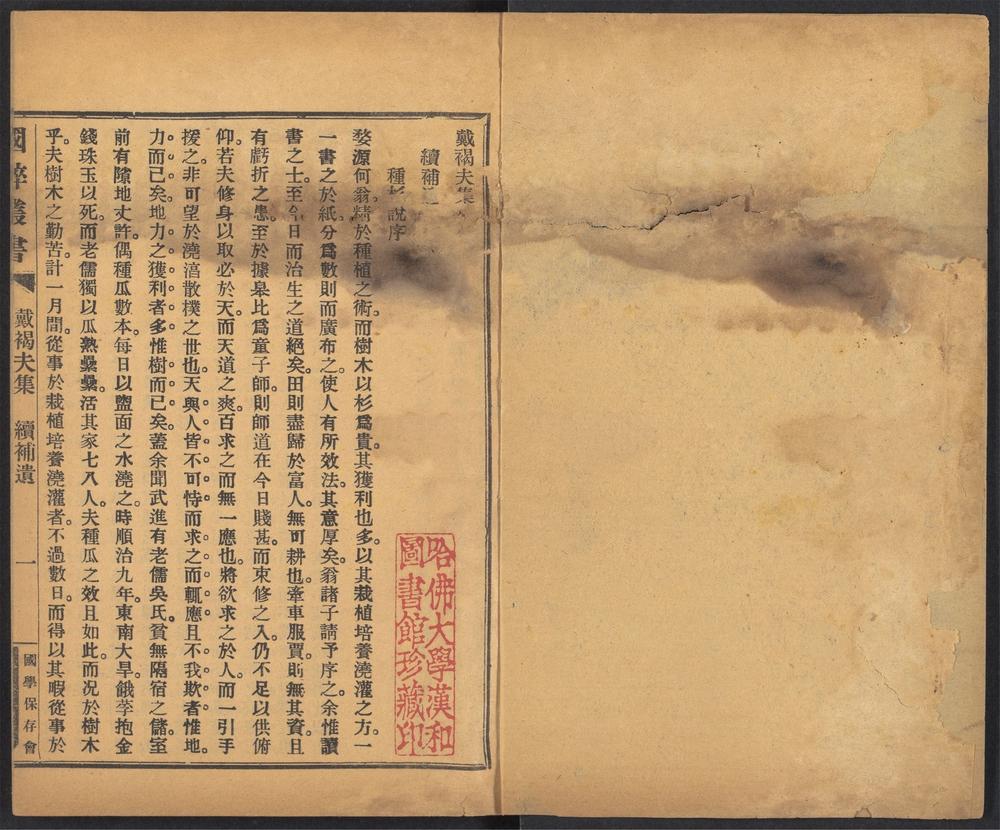 戴褐夫集
續補
種杉說序
婺源何翁精於種植之術。而樹木以杉爲貴。其獲利也多。以其栽植培養澆灌之方。一
一書之於紙。分爲數則而廣布之。使人有所效法。其意厚矣。翁諸子請予序之。余惟讀
書之士。至今日而治生之道絕矣。田則盡歸於富人。無可耕也。牽車服賈。則無其資。且
有虧折之患。至於據皋比爲童子師。則師道在今日賤甚。而束修之入。仍不足以供俯
仰。若夫修身以取必於天。而天道之爽。百求之而無一應也。將欲求之於人。而一引手
援之。非可望於澆漓散樸之世也。天與人皆不可恃而求之而輒應且不我欺者惟地
力而已矣。地力之獲利者多惟樹而已矣。蓋余聞武進有老儒吳氏。貧無隔宿之儲。室
前有隙地丈許。偶種瓜數本。每日以盥面之水澆之。時順治九年。東南大旱。餓莩抱金
錢珠玉以死。而老儒獨以瓜熟纍纍。活其家七八人。夫種瓜之效且如此。而況於樹木
乎。夫樹木之勤苦。計一月間。從事於栽植培養澆灌者。不過數日。而得以其暇從事於
國粹叢書
戴褐夫集 續補遺
一
國學保存會
哈佛大學漢和
圖書館珍藏印